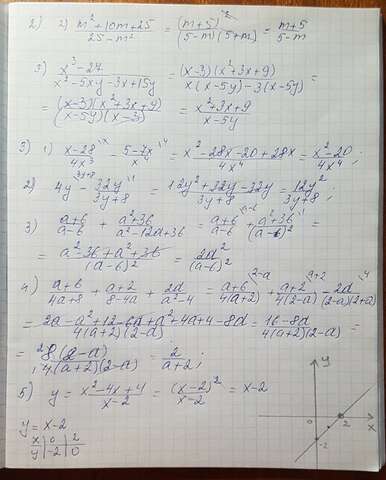 2) 2) (m²+10m+25)/(25-m²) = (m+5)²/((5-m)(5+m)) = (m+5)/(5-m)
3) (x³-27)/(x²-5xy-3x+15y) = ((x-3)(x²+3x+9))/(x(x-5y)-3(x-5y)) =
= ((x-3)(x²+3x+9))/((x-5y)(x-3)) = (x²+3x+9)/(x-5y)
3) 1) (x-28)/(4x³) - (5-7x)/(x⁴) = (x²-28x-20+28x)/(4x⁴) = (x²-20)/(4x⁴);
2) 4y - (32y)/(3y+8) = (12y²+32y-32y)/(3y+8) = (12y²)/(3y+8);
3) (a+6)/(a-6) + (a²+36)/(a²-12a+36) = (a+6)/(a-6) + (a²+36)/(a-6)² =
= (a²-36+a²+36)/(a-6)² = (2a²)/(a-6)²
4) (a+6)/(4a+8) + (a+2)/(8-4a) + (2a)/(a²-4) = (a+6)/(4(a+2)) + (a+2)/(4(2-a)) - (2a)/((2-a)(2+a))
= (2a-a²+12-6a+a²+4a+4-8a)/(4(a+2)(2-a)) = (16-8a)/(4(a+2)(2-a)) =
= (8(2-a))/(4(a+2)(2-a)) = 2/(a+2);
5) y = (x²-4x+4)/(x-2) = (x-2)²/(x-2) = x-2
y = x-2
x | 0 | 2
y | -2 | 0
y
0
2
x
-2